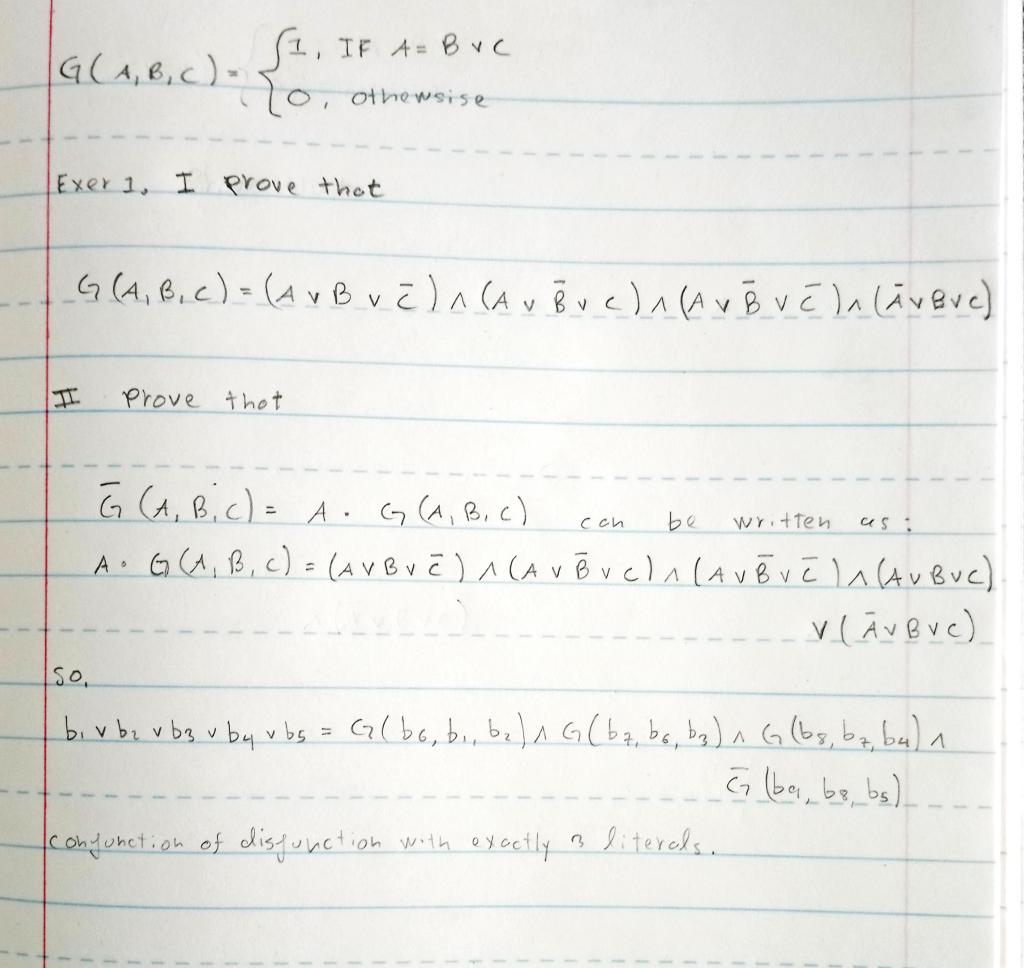 G(A,B,C) = {1, IF A = B ∨ C
0, othewsise
Exer 1. I Prove thot
G(A,B,C) = (A ∨ B ∨ C̄) ∧ (A ∨ B̄ ∨ C) ∧ (A ∨ B̄ ∨ C̄) ∧ (Ā ∨ B ∨ C)
II Prove thot
Ḡ(A,B,C) = A · G(A,B,C) can be written as:
A · G(A,B,C) = (A ∨ B ∨ C̄) ∧ (A ∨ B̄ ∨ C) ∧ (A ∨ B̄ ∨ C̄) ∧ (A ∨ B ∨ C)
∨ (Ā ∨ B ∨ C)
so,
b₁ ∨ b₂ ∨ b₃ ∨ b₄ ∨ b₅ = G(b₆, b₁, b₂) ∧ G(b₇, b₆, b₃) ∧ G(b₈, b₇, b₄) ∧
Ḡ(b₉, b₈, b₅)
conjunction of disjunction with exactly 3 literals.